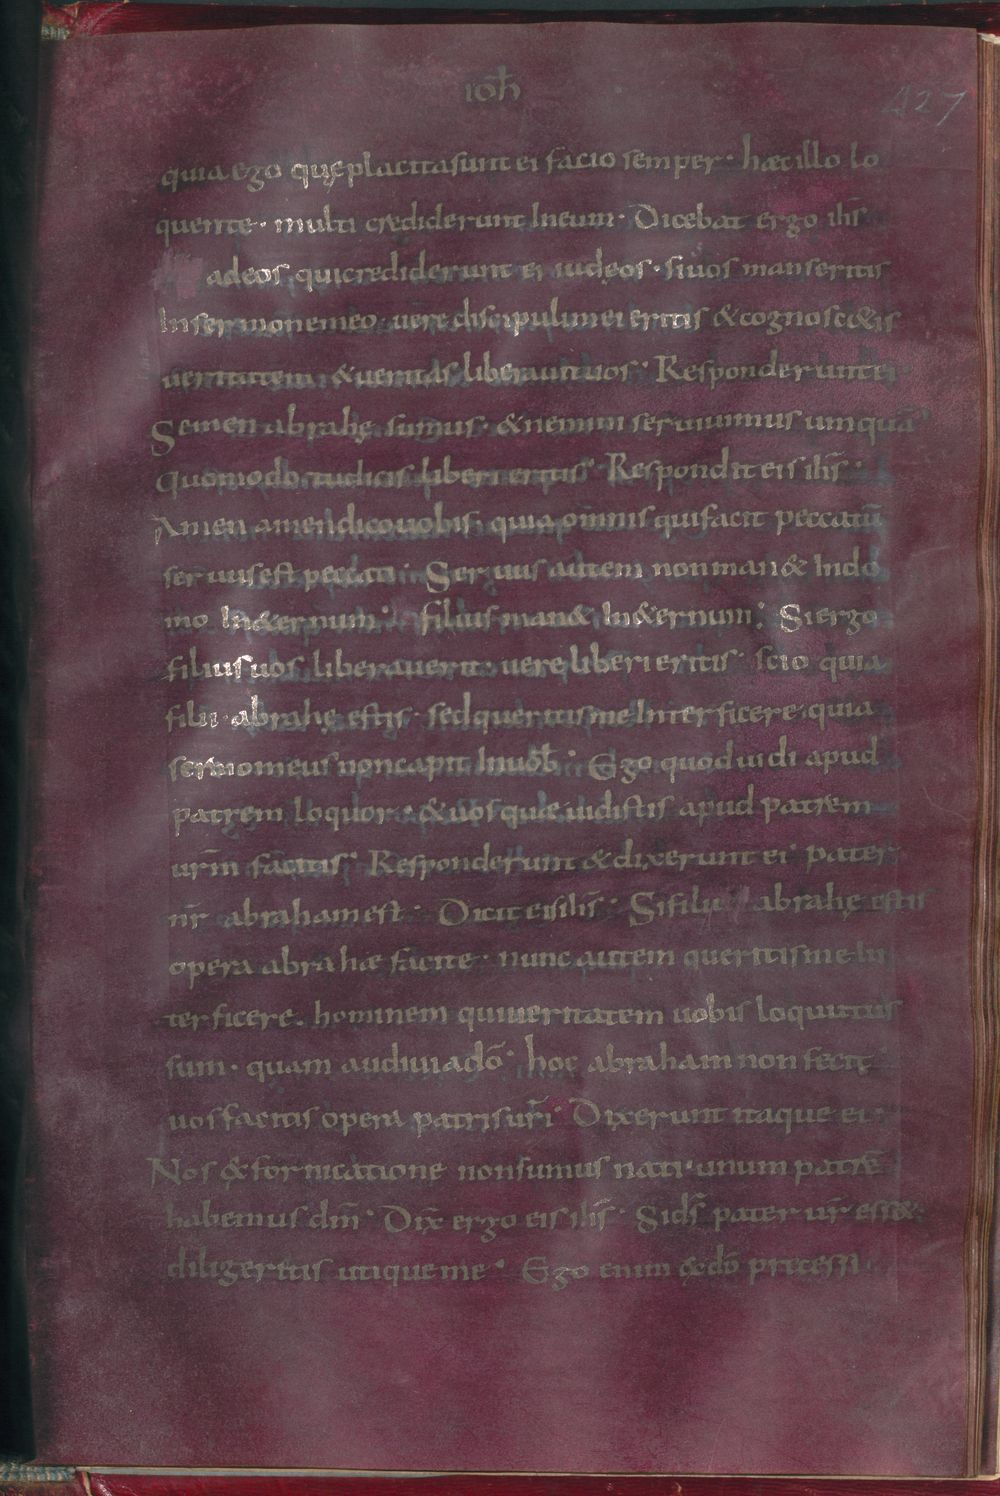 ioħ
427
quia ego quę placita sunt ei facio semper · hæc illo lo
quente · multi crediderunt In eum · Dicebat ergo ih̅s
ad eos, qui crediderunt ei iudęos · si uos manseritis
In sermone meo uere discipuli mei eritis & cognosc&is
ueritatem · & ueritas liberauit uos · Responderunt ei
Semen abrahę sumus · & nemini seruiuimus umquā
Quomodo tu dicis liberi eritis · Respondit eis ih̅s ·
Amen amen dico uobis, quia omnis qui facit peccatū
seruus est peccati · Seruus autem non man& In do
mo In &ernum · filius man& In &ernum ; Si ergo
filius uos liberauerit · uere liberi eritis · scio quia
filii abrahę estis · sed queritis me Interficere quia
sermo meus non capit In uob̅ · Ego quod uidi apud
patrem loquor · & uos que uidistis apud patrem
urm̅ facitis · Responderunt & dixerunt ei pater
nr̅ abraham est · Dicit eis ih̅s · Si filii abrahę estis
opera abrahæ facite · nunc autem queritis me In
terficere · hominem qui ueritatem uobis loquutus
sum · quam audiui a dō · hoc abraham non fecit
uos facitis opera patris ur̅i · Dixerunt itaque ei ·
Nos ex fornicatione non sumus nati · unum patrē
habemus dm̅ · Dix̅ ergo eis ih̅s · Si ds̅ pater ur̅ ess&
diligeretis utique me · Ego enim ex dō processi